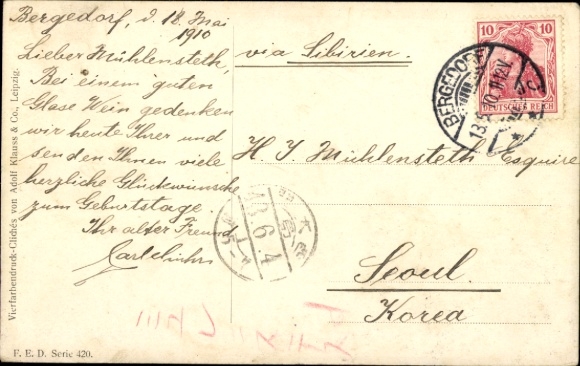 Bergedorf, d. 18. Mai
1910
Lieber Mühlensteth,
Bei einem guten
Glase Wein gedenken
wir heute Ihrer und
senden Ihnen viele
herzliche Glückwünsche
zum Geburtstage.
Ihr alter Freund
via Sibirien.
10 10
DEUTSCHES REICH
BERGEDORF
H. J. Mühlensteth Esquire
Seoul.
Korea
43.6.4
Vierfarbendruck-Clichés von Adolf Klauss & Co., Leipzig.
F. E. D. Serie 420.